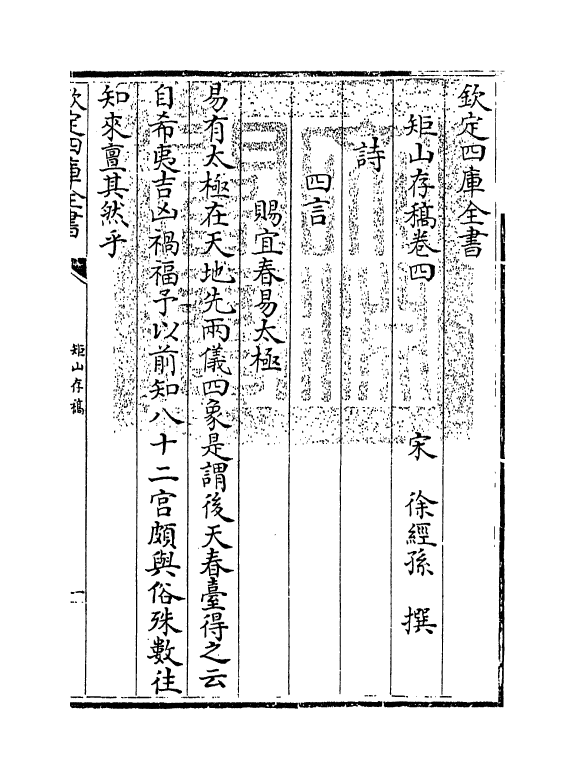 欽定四庫全書
矩山存稿卷四
宋 徐經孫 撰
詩
四言
賜宜春易太極
易有太極在天地先兩儀四象是謂後天春臺得之云
自希夷吉凶禍福予以前知八十二宮頗與俗殊數往
知來亶其然乎
欽定四庫全書
矩山存稿
一